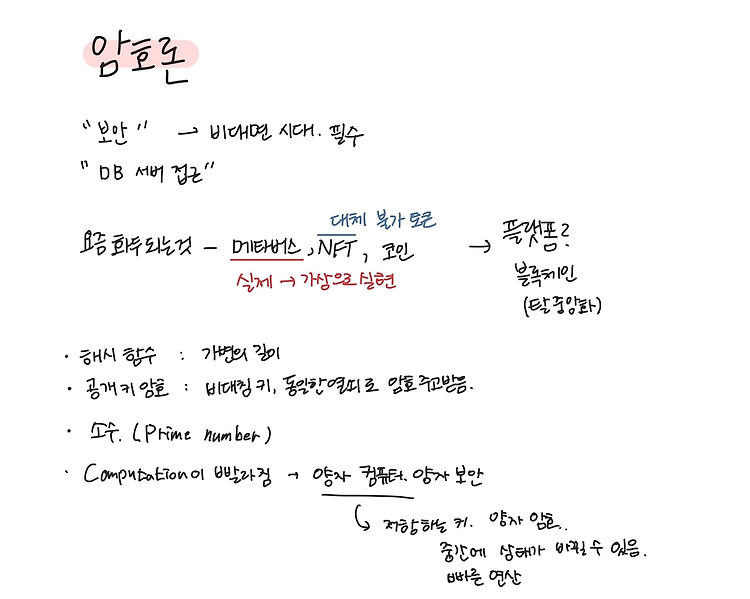 암호론
“보안” → 비대면 시대. 필수
“DB 서버 접근”
대체 불가 토큰
요즘 화두되는것 - 메타버스, NFT, 코인 → 플랫폼?
실제 → 가상으로 실현
블록체인
(탈중앙화)
· 해시 함수 : 가변의 길이
· 공개키 암호 : 비대칭 키, 동일한 열쇠로 암호 주고받음.
· 소수. (Prime number)
· Computation이 빨라짐 → 양자 컴퓨터. 양자 보안
저항하는 키. 양자 암호..
중간에 상태가 바뀔 수 있음.
빠른 연산